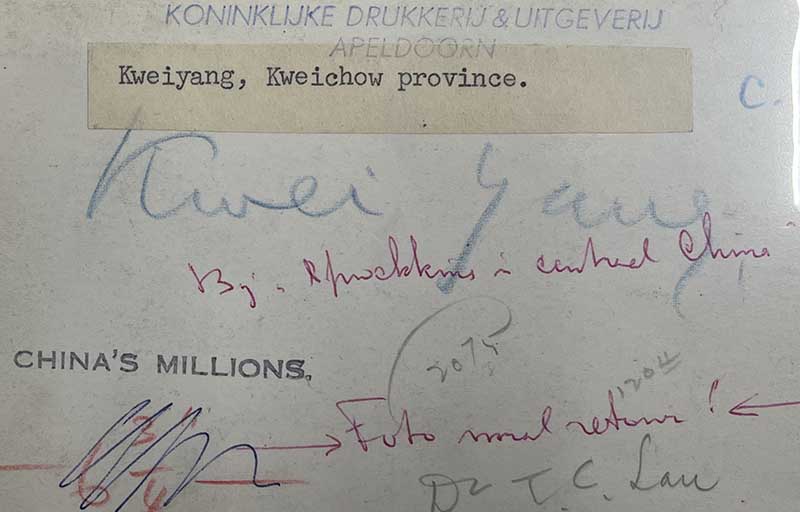 KONINKLIJKE DRUKKERIJ & UITGEVERIJ
APELDOORN
Kweiyang, Kweichow province.
C.
Kwei Yang
By: in central China
CHINA'S MILLIONS.
Foto moet retour!
Dr T. C. Lau